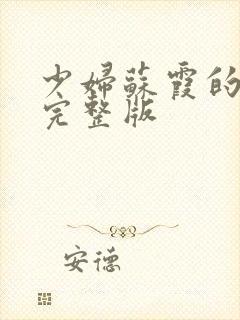 少婦蘇霞的
完整版
安德